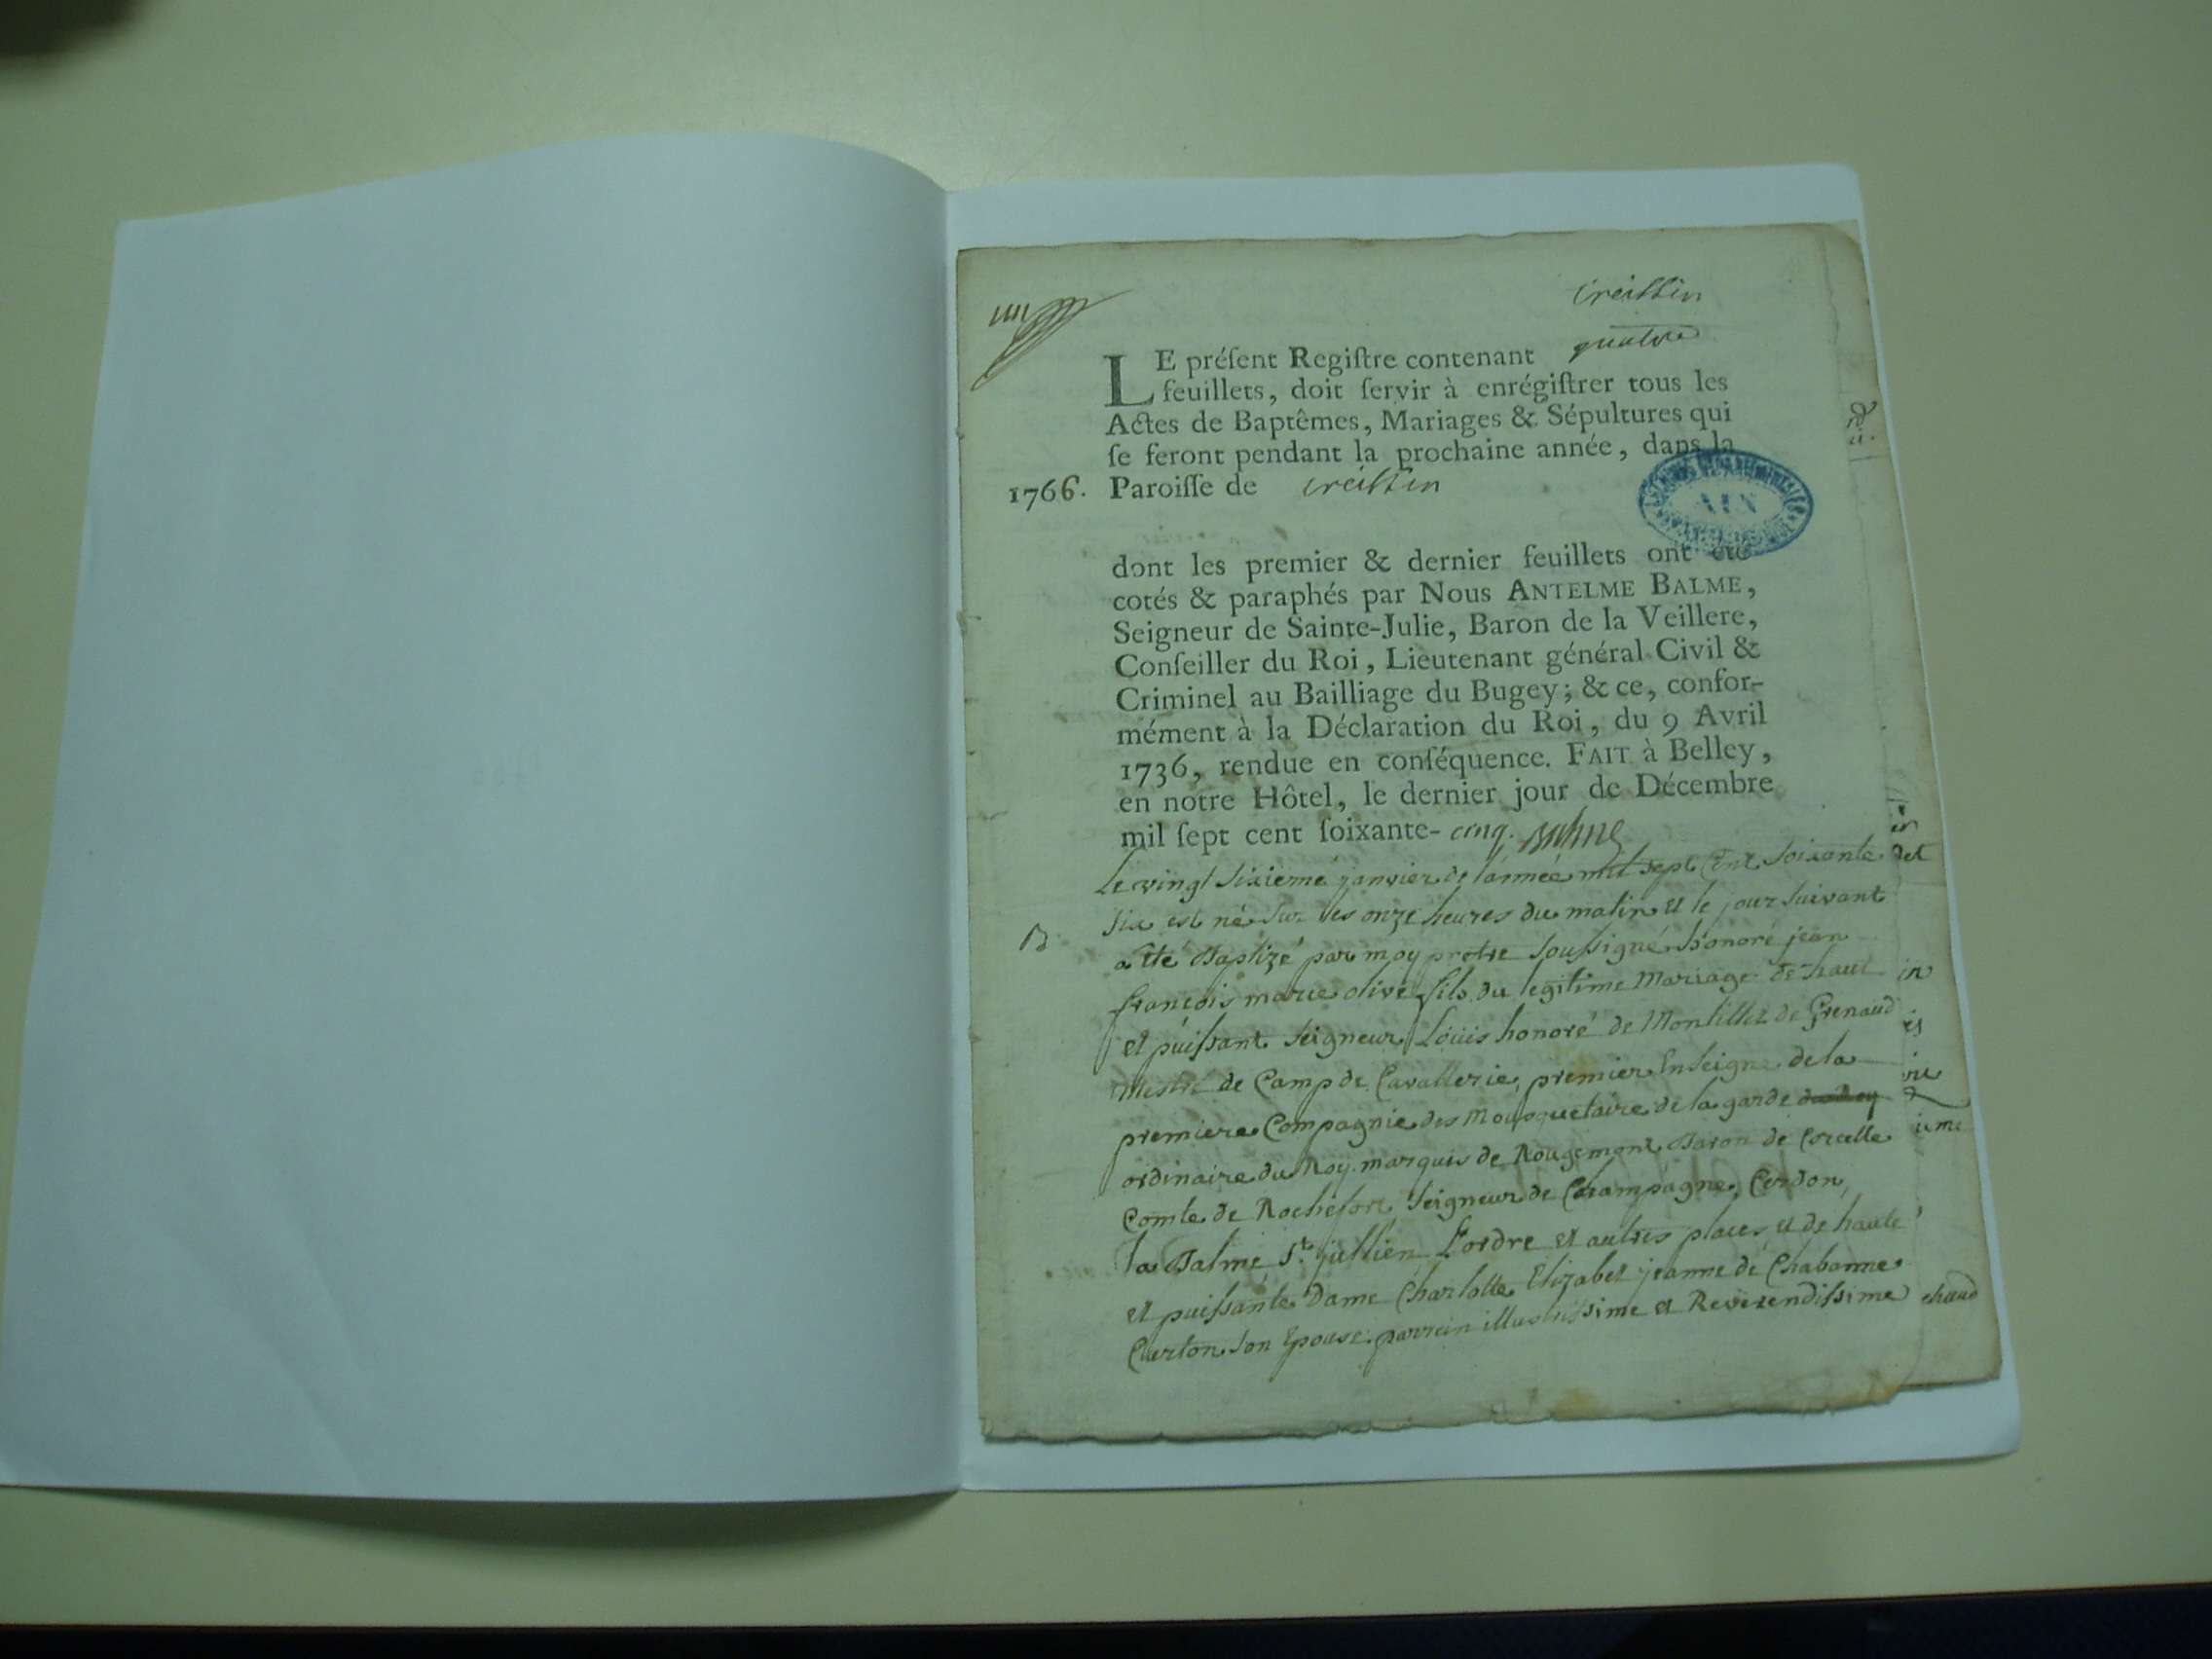 creissin
quatre
LE préſent Regiſtre contenant
feuillets, doit ſervir à enrégiſtrer tous les
Actes de Baptêmes, Mariages & Sépultures qui
ſe feront pendant la prochaine année, dans la
1766. Paroiſſe de creissin
AIN
dont les premier & dernier feuillets ont été
cotés & paraphés par Nous ANTELME BALME,
Seigneur de Sainte-Julie, Baron de la Veillere,
Conſeiller du Roi, Lieutenant général Civil &
Criminel au Bailliage du Bugey; & ce, confor-
mément à la Déclaration du Roi, du 9 Avril
1736, rendue en conſéquence. FAIT à Belley,
en notre Hôtel, le dernier jour de Décembre
mil ſept cent ſoixante- cinq. Balme
Le vingt sixieme janvier de l'année mil sept Cent soixante
six est né sur les onze heures du matin et le jour suivant
B a été Baptizé par moy pretre soussigné honoré jean
françois marie olive fils du legitime Mariage de haut
et puissant seigneur Loüis honoré de Montillet de Grenaud
Mestre de Camp de Cavallerie, premier Enseigne de la
premiere Compagnie des Mousquetaire de la garde
ordinaire du Roy marquis de Rougemont Baron de Corcelle
Comte de Rochefort seigneur de Champagne, Cerdon,
la Balme St. jullien Lordre et autres places, et de haute
et puissante Dame Charlotte Elizabet jeanne de Chabanne
Curton son Epouse. parrein illustrissime et Reverendissime